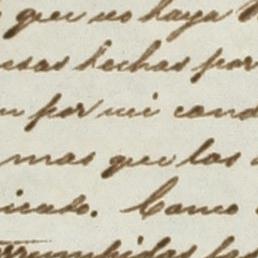 que no haya
hechas por
por mi cond
mas que las
icado. Como
rrumpidas